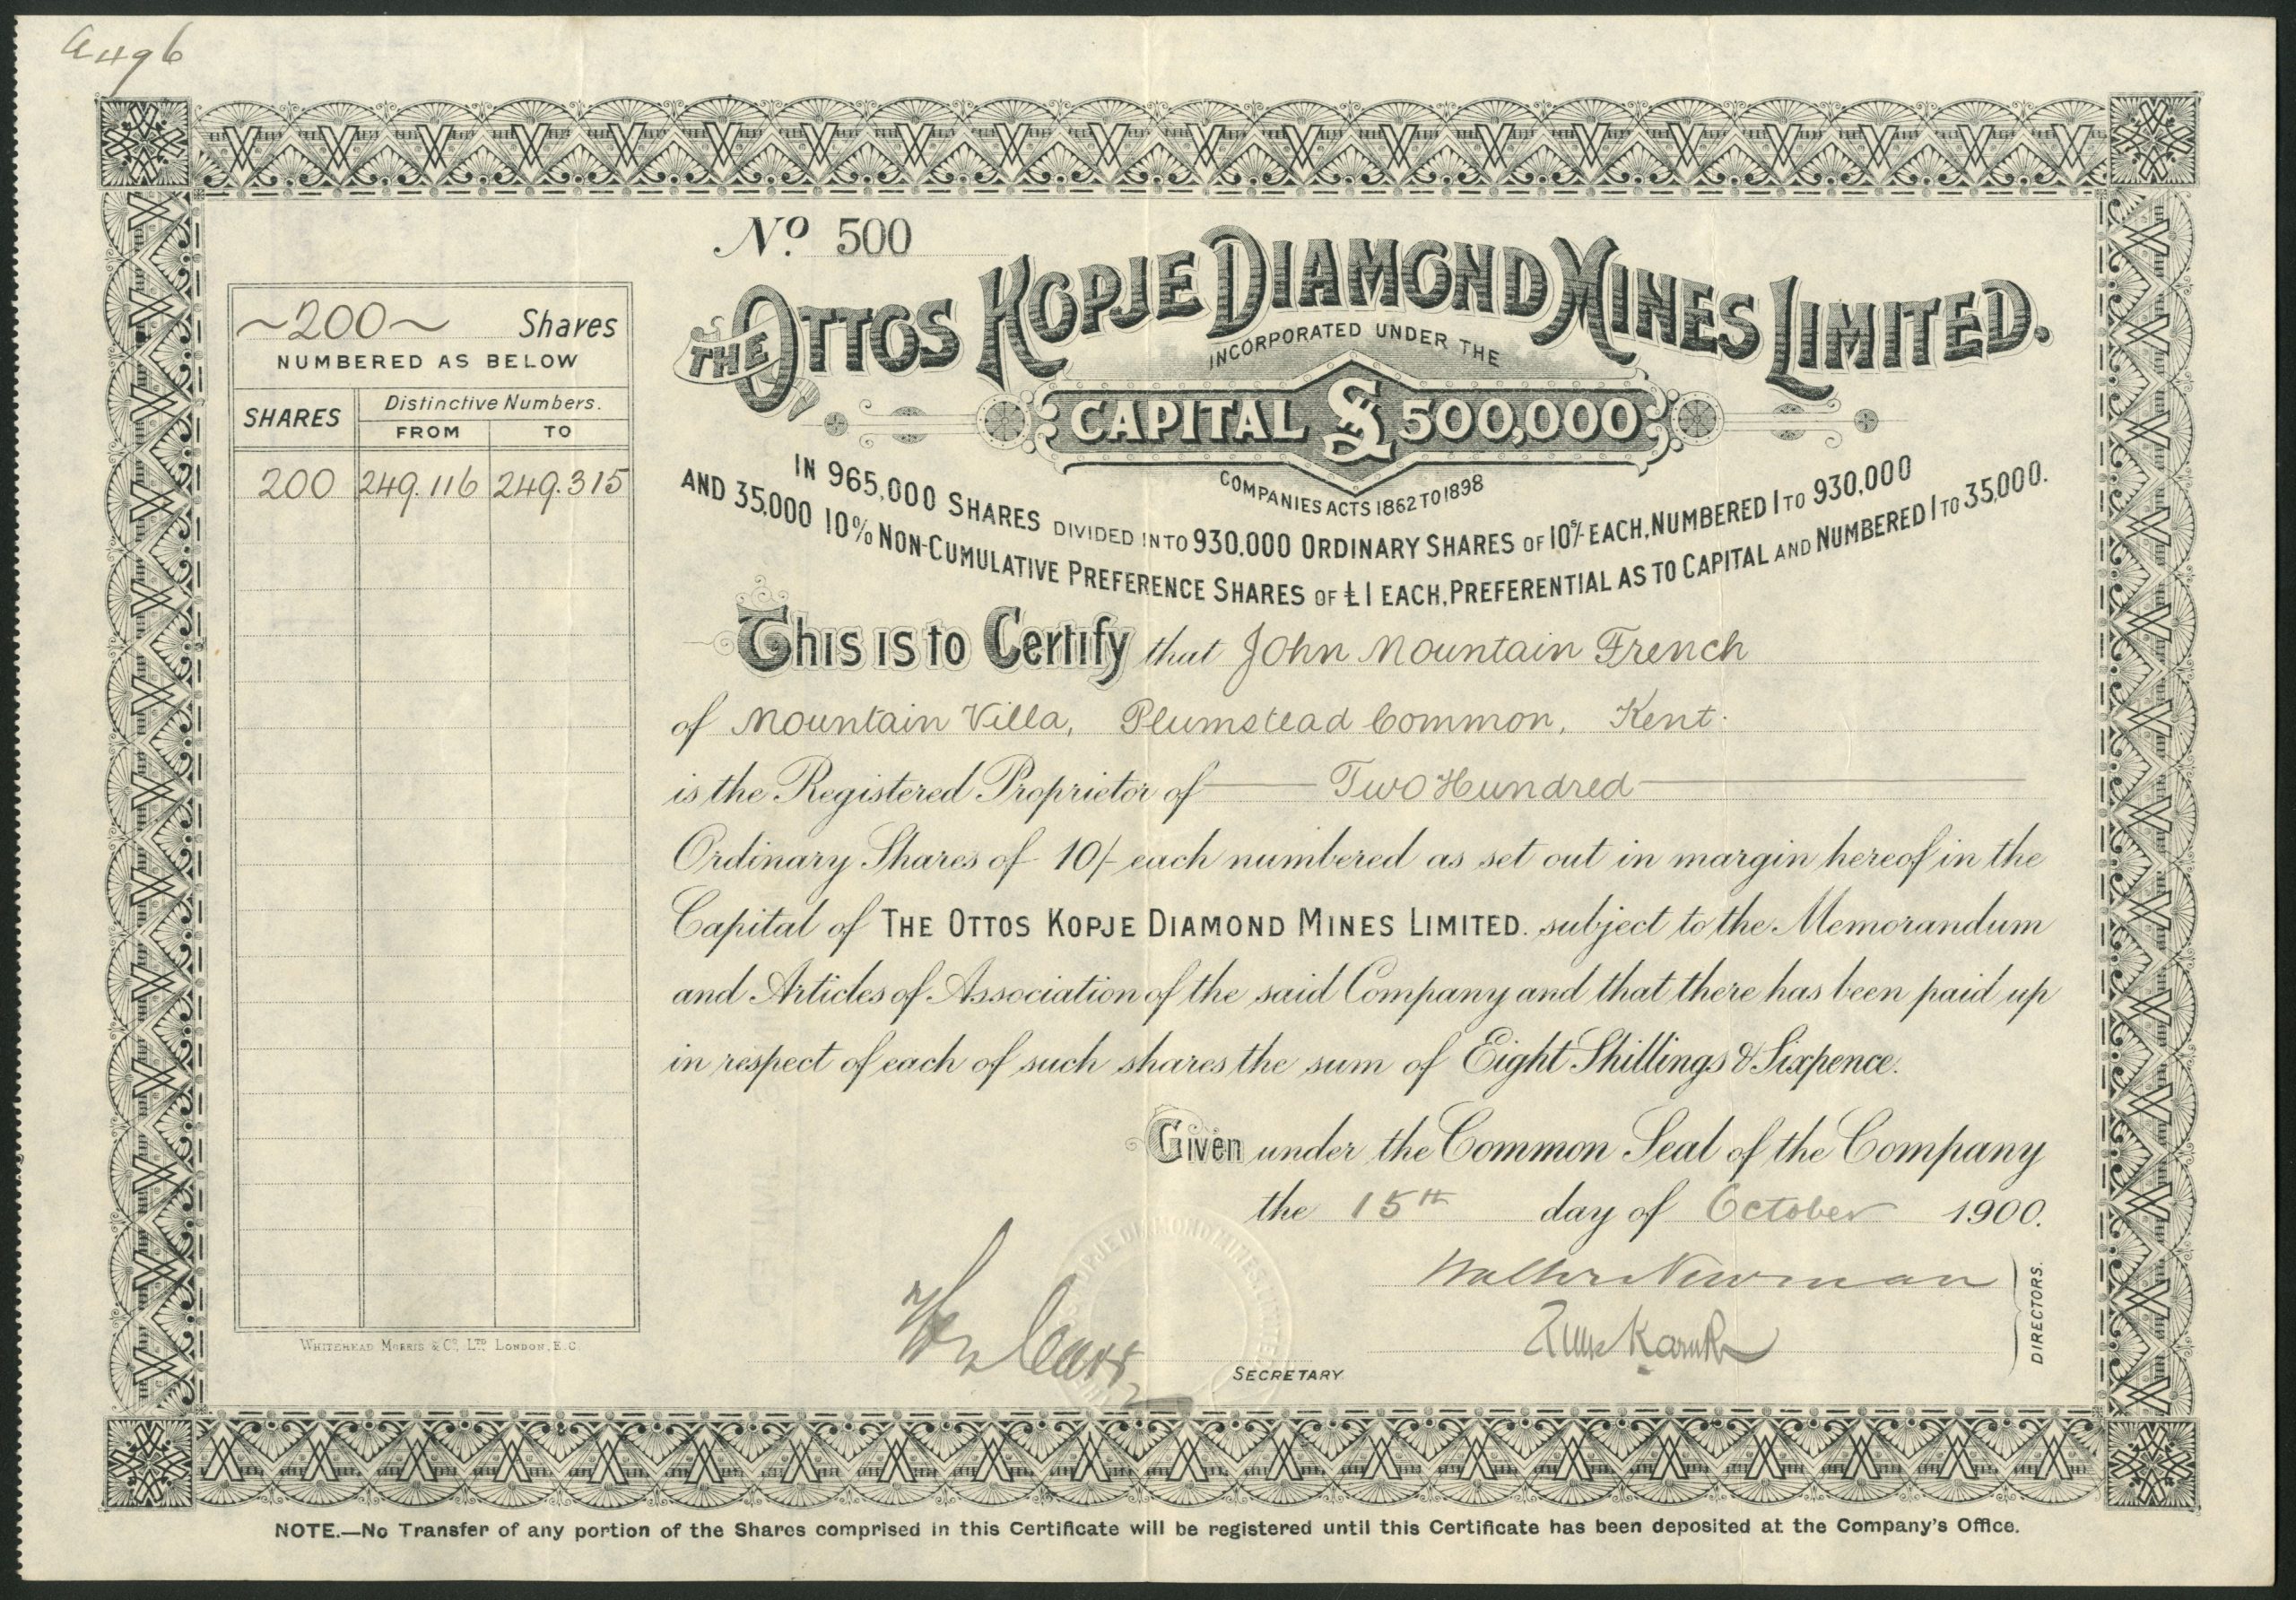 a496
No. 500
~200~ Shares
NUMBERED AS BELOW
SHARES
Distinctive Numbers.
FROM TO
200 249.116 249.315
THE OTTOS KOPJE DIAMOND MINES LIMITED.
INCORPORATED UNDER THE
CAPITAL £500,000
COMPANIES ACTS 1862 TO 1898
IN 965,000 SHARES DIVIDED INTO 930,000 ORDINARY SHARES OF 10S/- EACH, NUMBERED 1 TO 930,000
AND 35,000 10% NON-CUMULATIVE PREFERENCE SHARES OF £1 EACH, PREFERENTIAL AS TO CAPITAL AND NUMBERED 1 TO 35,000.
This is to Certify that John Mountain French
of Mountain Villa, Plumstead Common, Kent.
is the Registered Proprietor of Two Hundred
Ordinary Shares of 10/- each numbered as set out in margin hereof in the
Capital of THE OTTOS KOPJE DIAMOND MINES LIMITED. subject to the Memorandum
and Articles of Association of the said Company and that there has been paid up
in respect of each of such shares the sum of Eight Shillings & Sixpence.
Given under the Common Seal of the Company
the 15th day of October 1900.
Walter Newman
DIRECTORS.
SECRETARY
WHITEHEAD MORRIS & CO. LTD. LONDON, E.C.
NOTE.—No Transfer of any portion of the Shares comprised in this Certificate will be registered until this Certificate has been deposited at the Company's Office.